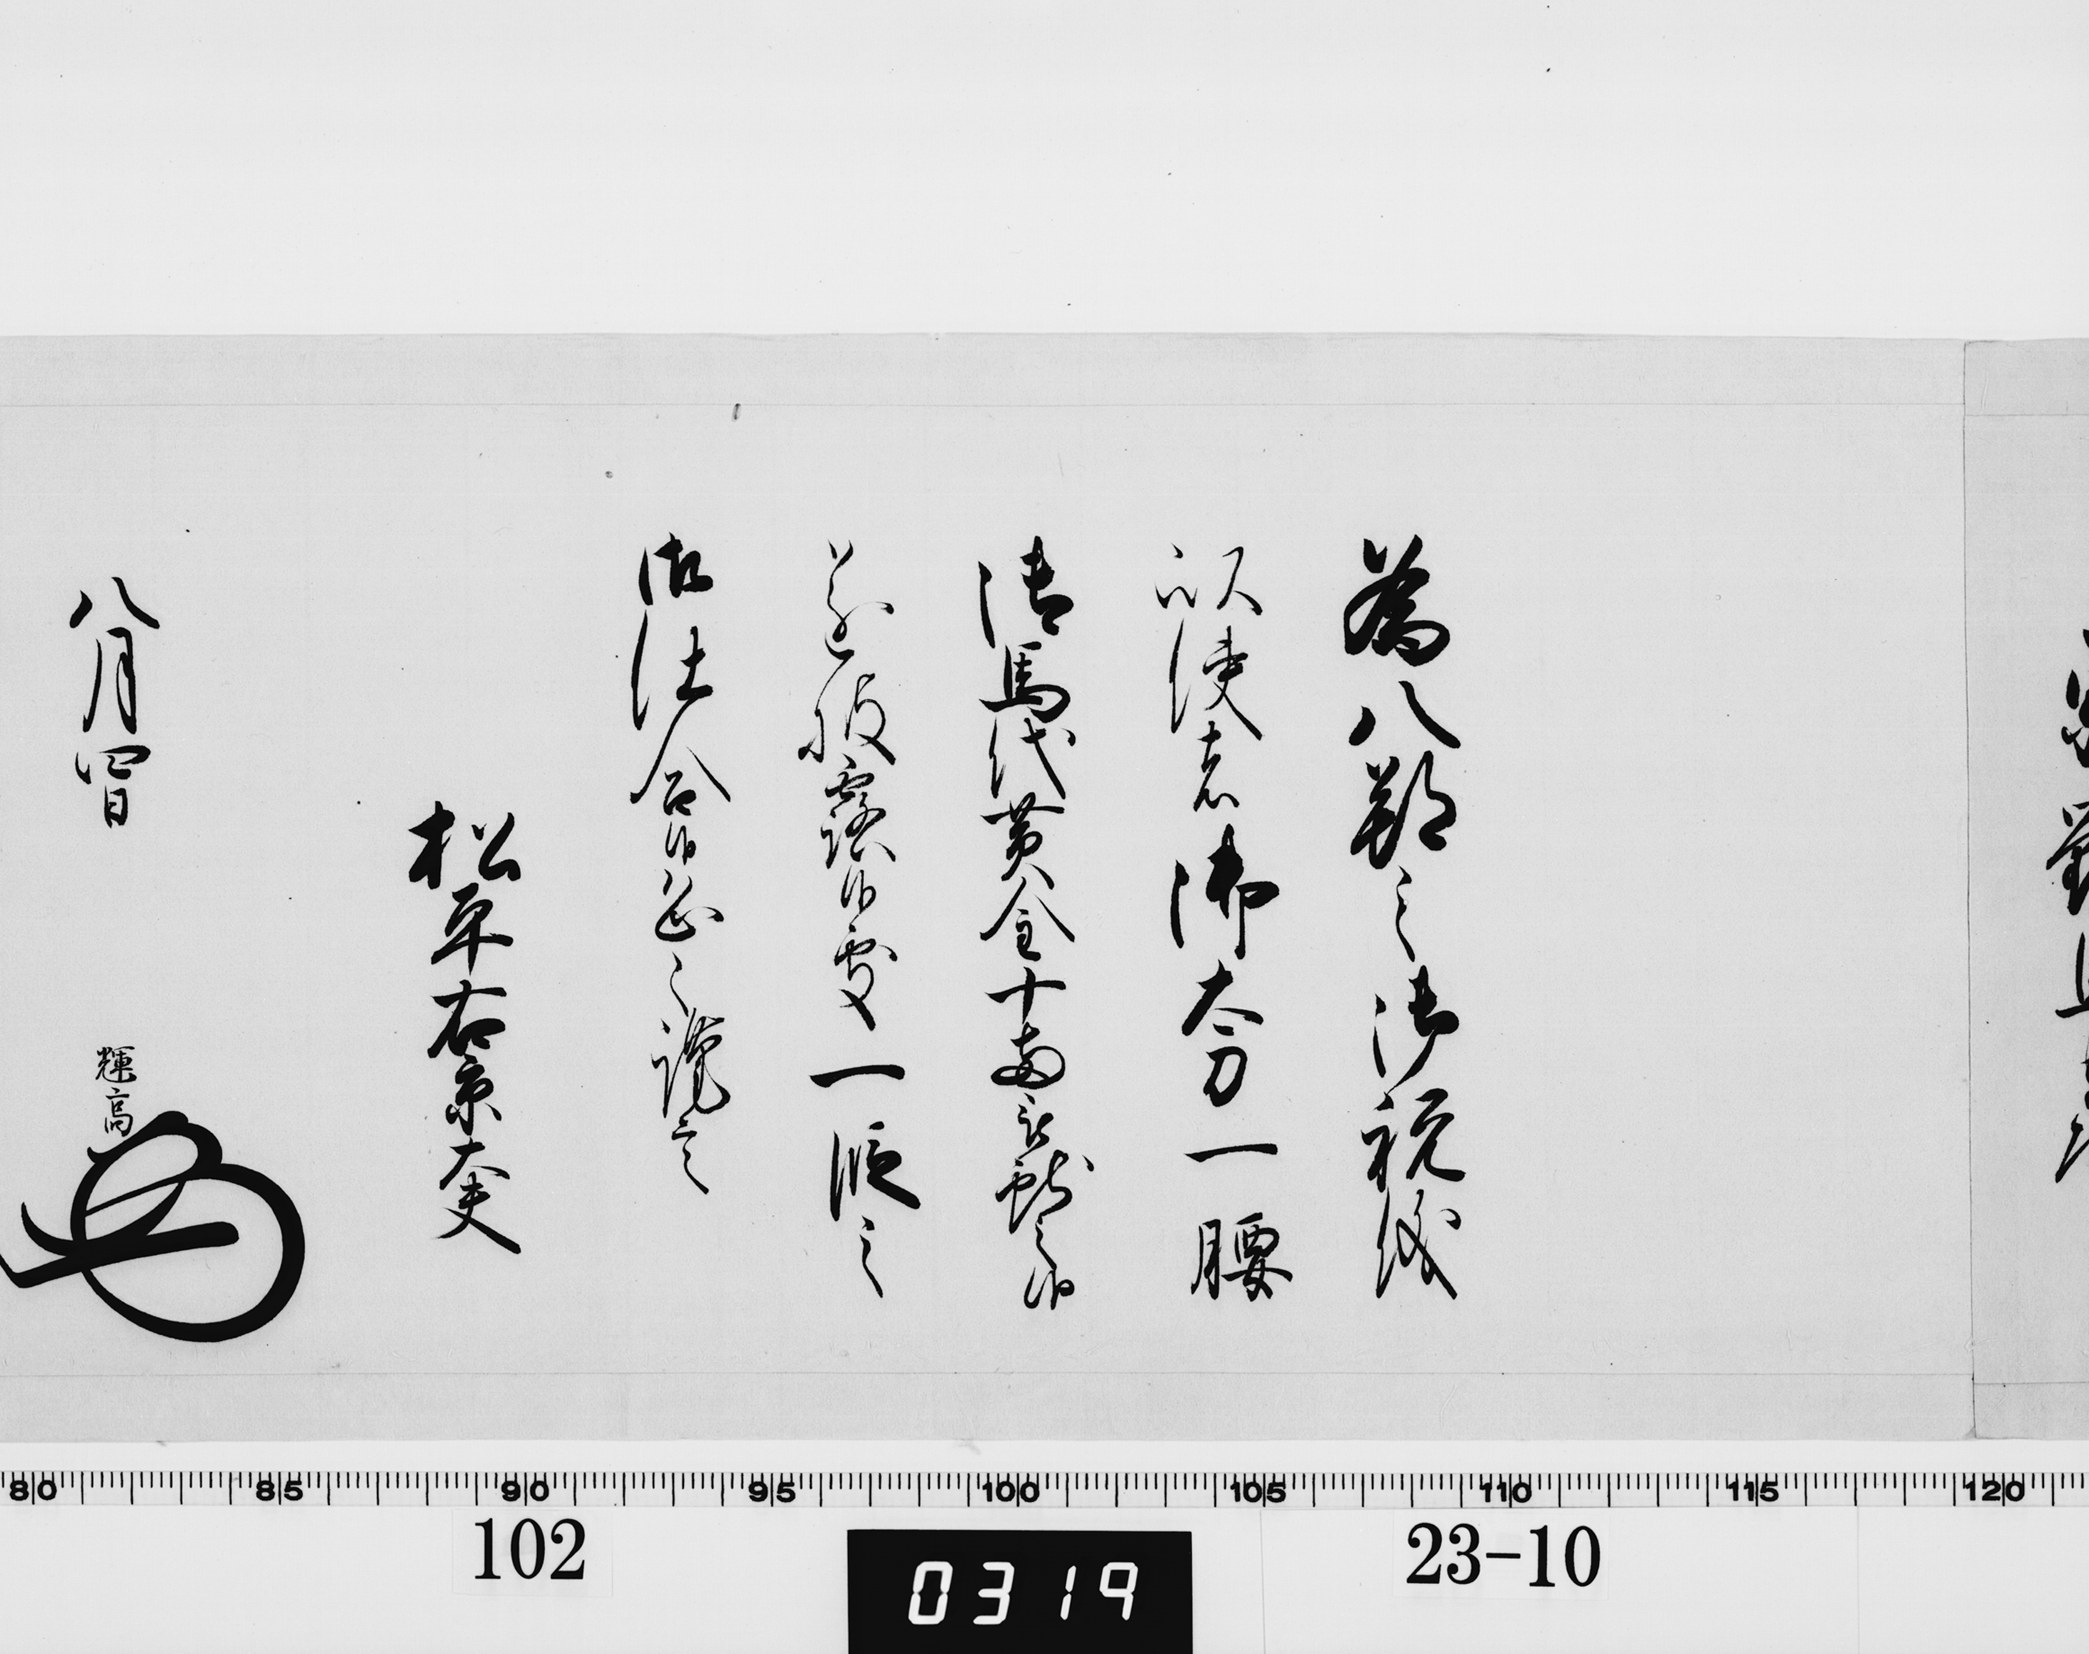 為八朔之御祝儀
以使者御太刀一腰
御馬代黄金十両被献之候
遂披露候處一段之
御仕合候恐々謹言
松平右京大夫
八月四日
輝高
80 85 90 95 100 105 110 115 120
102
0319
23-10